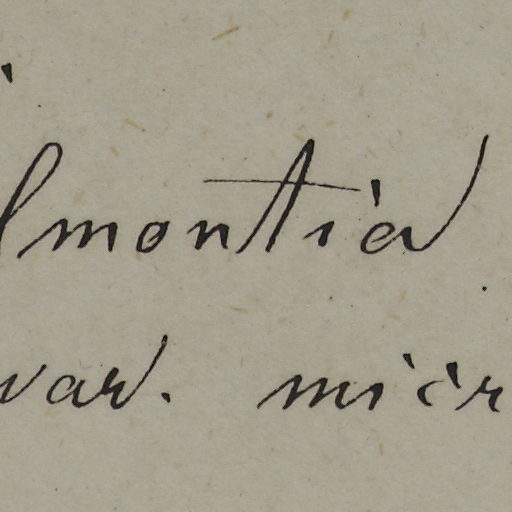 lmontia
var. micr